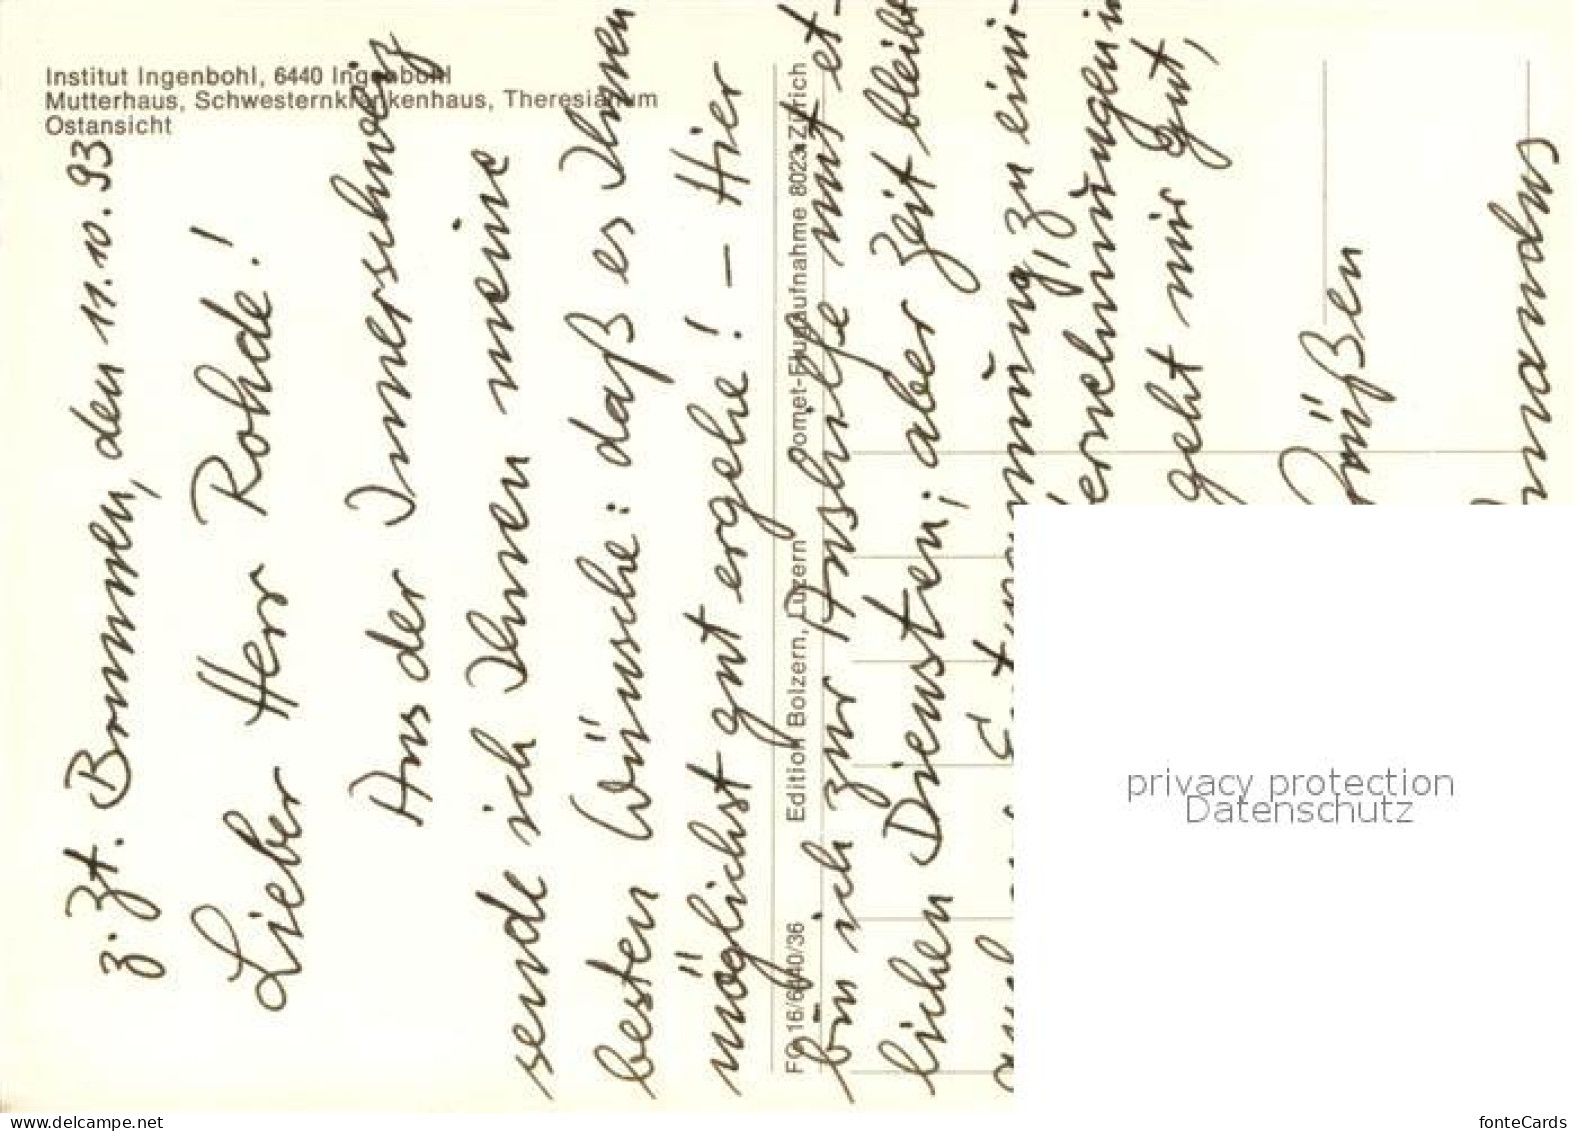 Institut Ingenbohl, 6440 Ingenbohl
Mutterhaus, Schwesternkrankenhaus, Theresianum
Ostansicht
z. Zt. Brunnen, den 11.10.93
Lieber Herr Rohde!
Aus der Innerschweiz
sende ich Ihnen meine
besten Wünsche: daß es Ihnen
möglichst gut ergehe! – Hier
bin ich zur Aushilfe mit et-
lichen Diensten; aber Zeit bleibt
zu eini-
geht mir gut,
Grüßen
FO 16/6440/36 Edition Bolzern, Luzern Comet-Flugaufnahme 8023 Zürich
privacy protection
Datenschutz
www.delcampe.net
fonteCards